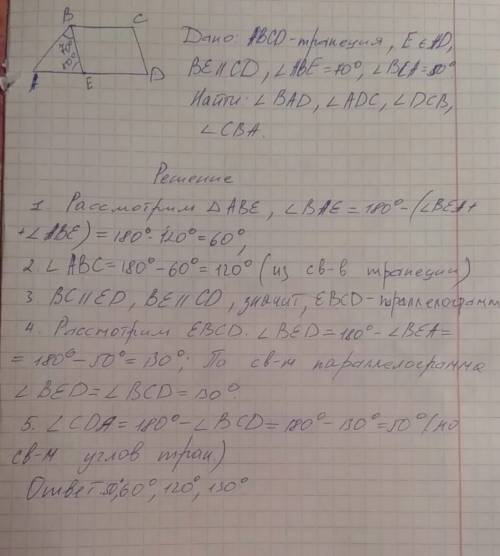 B C
70°
50°
A E D
Дано: ABCD-трапеция, E∈AD,
BE||CD, ∠ABE=70°, ∠BEA=50°
Найти: ∠BAD, ∠ADC, ∠DCB,
∠CBA.
Решение
1. Рассмотрим △ABE, ∠BAE=180°-(∠BEA+
+∠ABE)=180°-120°=60°,
2. ∠ABC=180°-60°=120° (из св-в трапеции)
3. BC||ED, BE||CD, значит, EBCD-параллелограмм
4. Рассмотрим EBCD. ∠BED=180°-∠BEA=
=180°-50°=130°; По св-м параллелограмма
∠BED=∠BCD=130°.
5. ∠CDA=180°-∠BCD=180°-130°=50° (по
св-м углов трап.)
Ответ: 50°, 60°, 120°, 130°